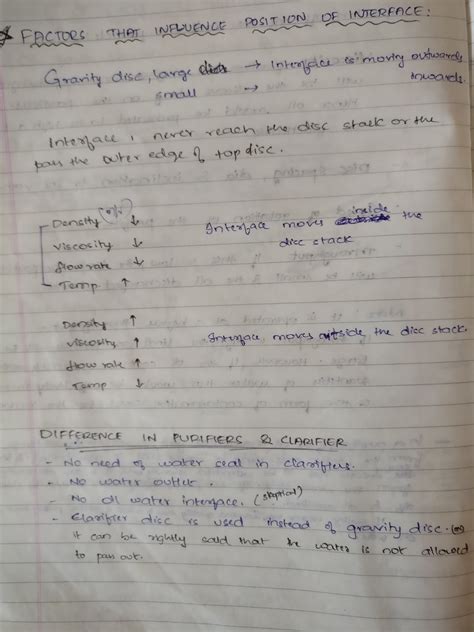 * FACTORS THAT INFLUENCE POSITION OF INTERFACE:
Gravity disc, large → Interface is moving outwards
small → inwards
Interface, never reach the disc stack or the
pass the outer edge of top disc.
Density (oil) ↓ Interface moves inside the
Viscosity ↓ disc stack
flow rate ↓
Temp ↑
Density ↑
Viscosity ↑ Interface, moves outside, the disc stack.
flow rate ↑
Temp ↓
DIFFERENCE IN PURIFIERS & CLARIFIER
- No need of water seal in clarifiers.
- No water outlet.
- No oil water interface. (skeptical)
- Clarifier disc is used instead of gravity disc. (or)
it can be rightly said that the water is not allowed
to pass out.